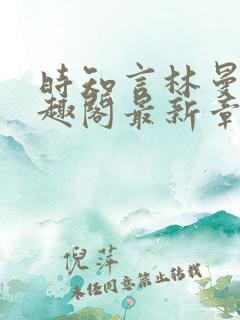 时知言林曼
趣阁最新章
倪萍
未经同意禁止转载